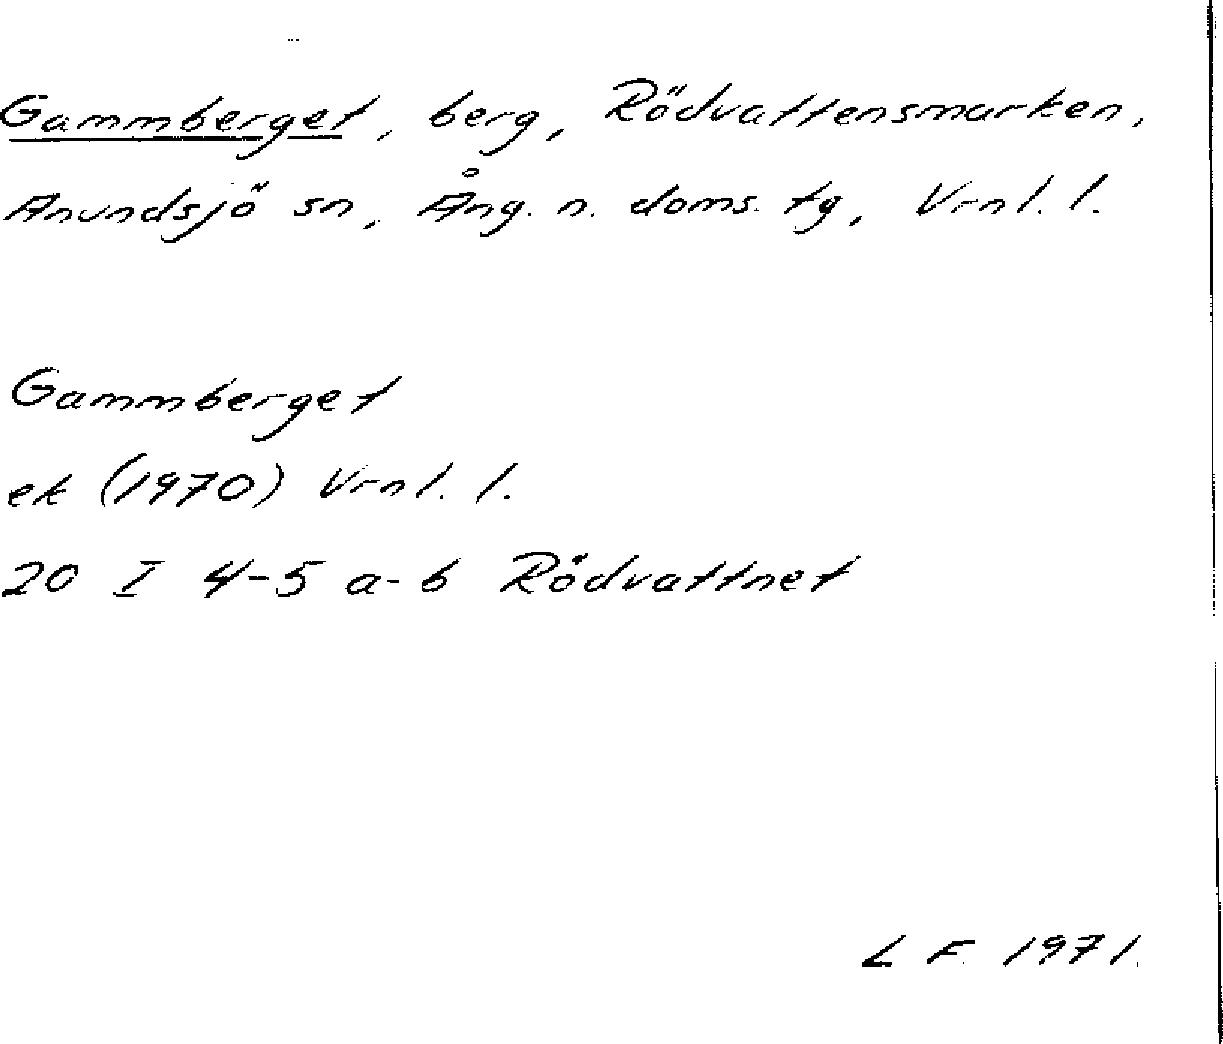 Gammberget, berg, Rödvattensmarken,
Anundsjö sn, Ång. n. doms. tg, Vrnl. l.
Gammberget
ek (1970) Vrnl. l.
20 I 4-5 a-b Rödvattnet
L F. 1971.